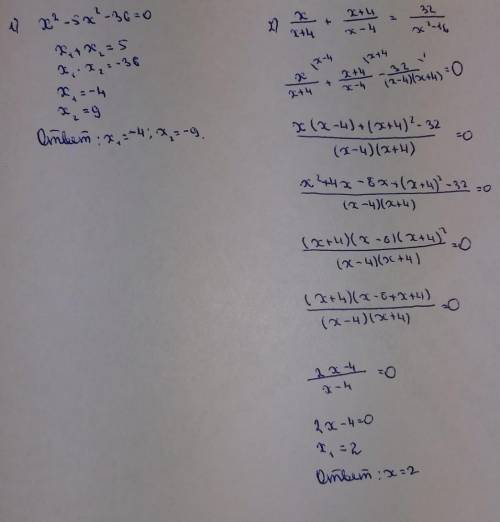 1) x² - 5x² - 36 = 0
x₁ + x₂ = 5
x₁ · x₂ = -36
x₁ = -4
x₂ = 9
Ответ: x₁ = -4; x₂ = -9.
2) x/(x+4) + (x+4)/(x-4) = 32/(x²-16)
x/(x+4) \x-4 + (x+4)/(x-4) \x+4 - 32/((x-4)(x+4)) \1 = 0
(x(x-4)+(x+4)²-32)/((x-4)(x+4)) = 0
(x²+4x-8x+(x+4)²-32)/((x-4)(x+4)) = 0
((x+4)(x-8)(x+4)²)/((x-4)(x+4)) = 0
((x+4)(x-8+x+4))/((x-4)(x+4)) = 0
(2x-4)/(x-4) = 0
2x-4=0
x₁ = 2
Ответ: x=2